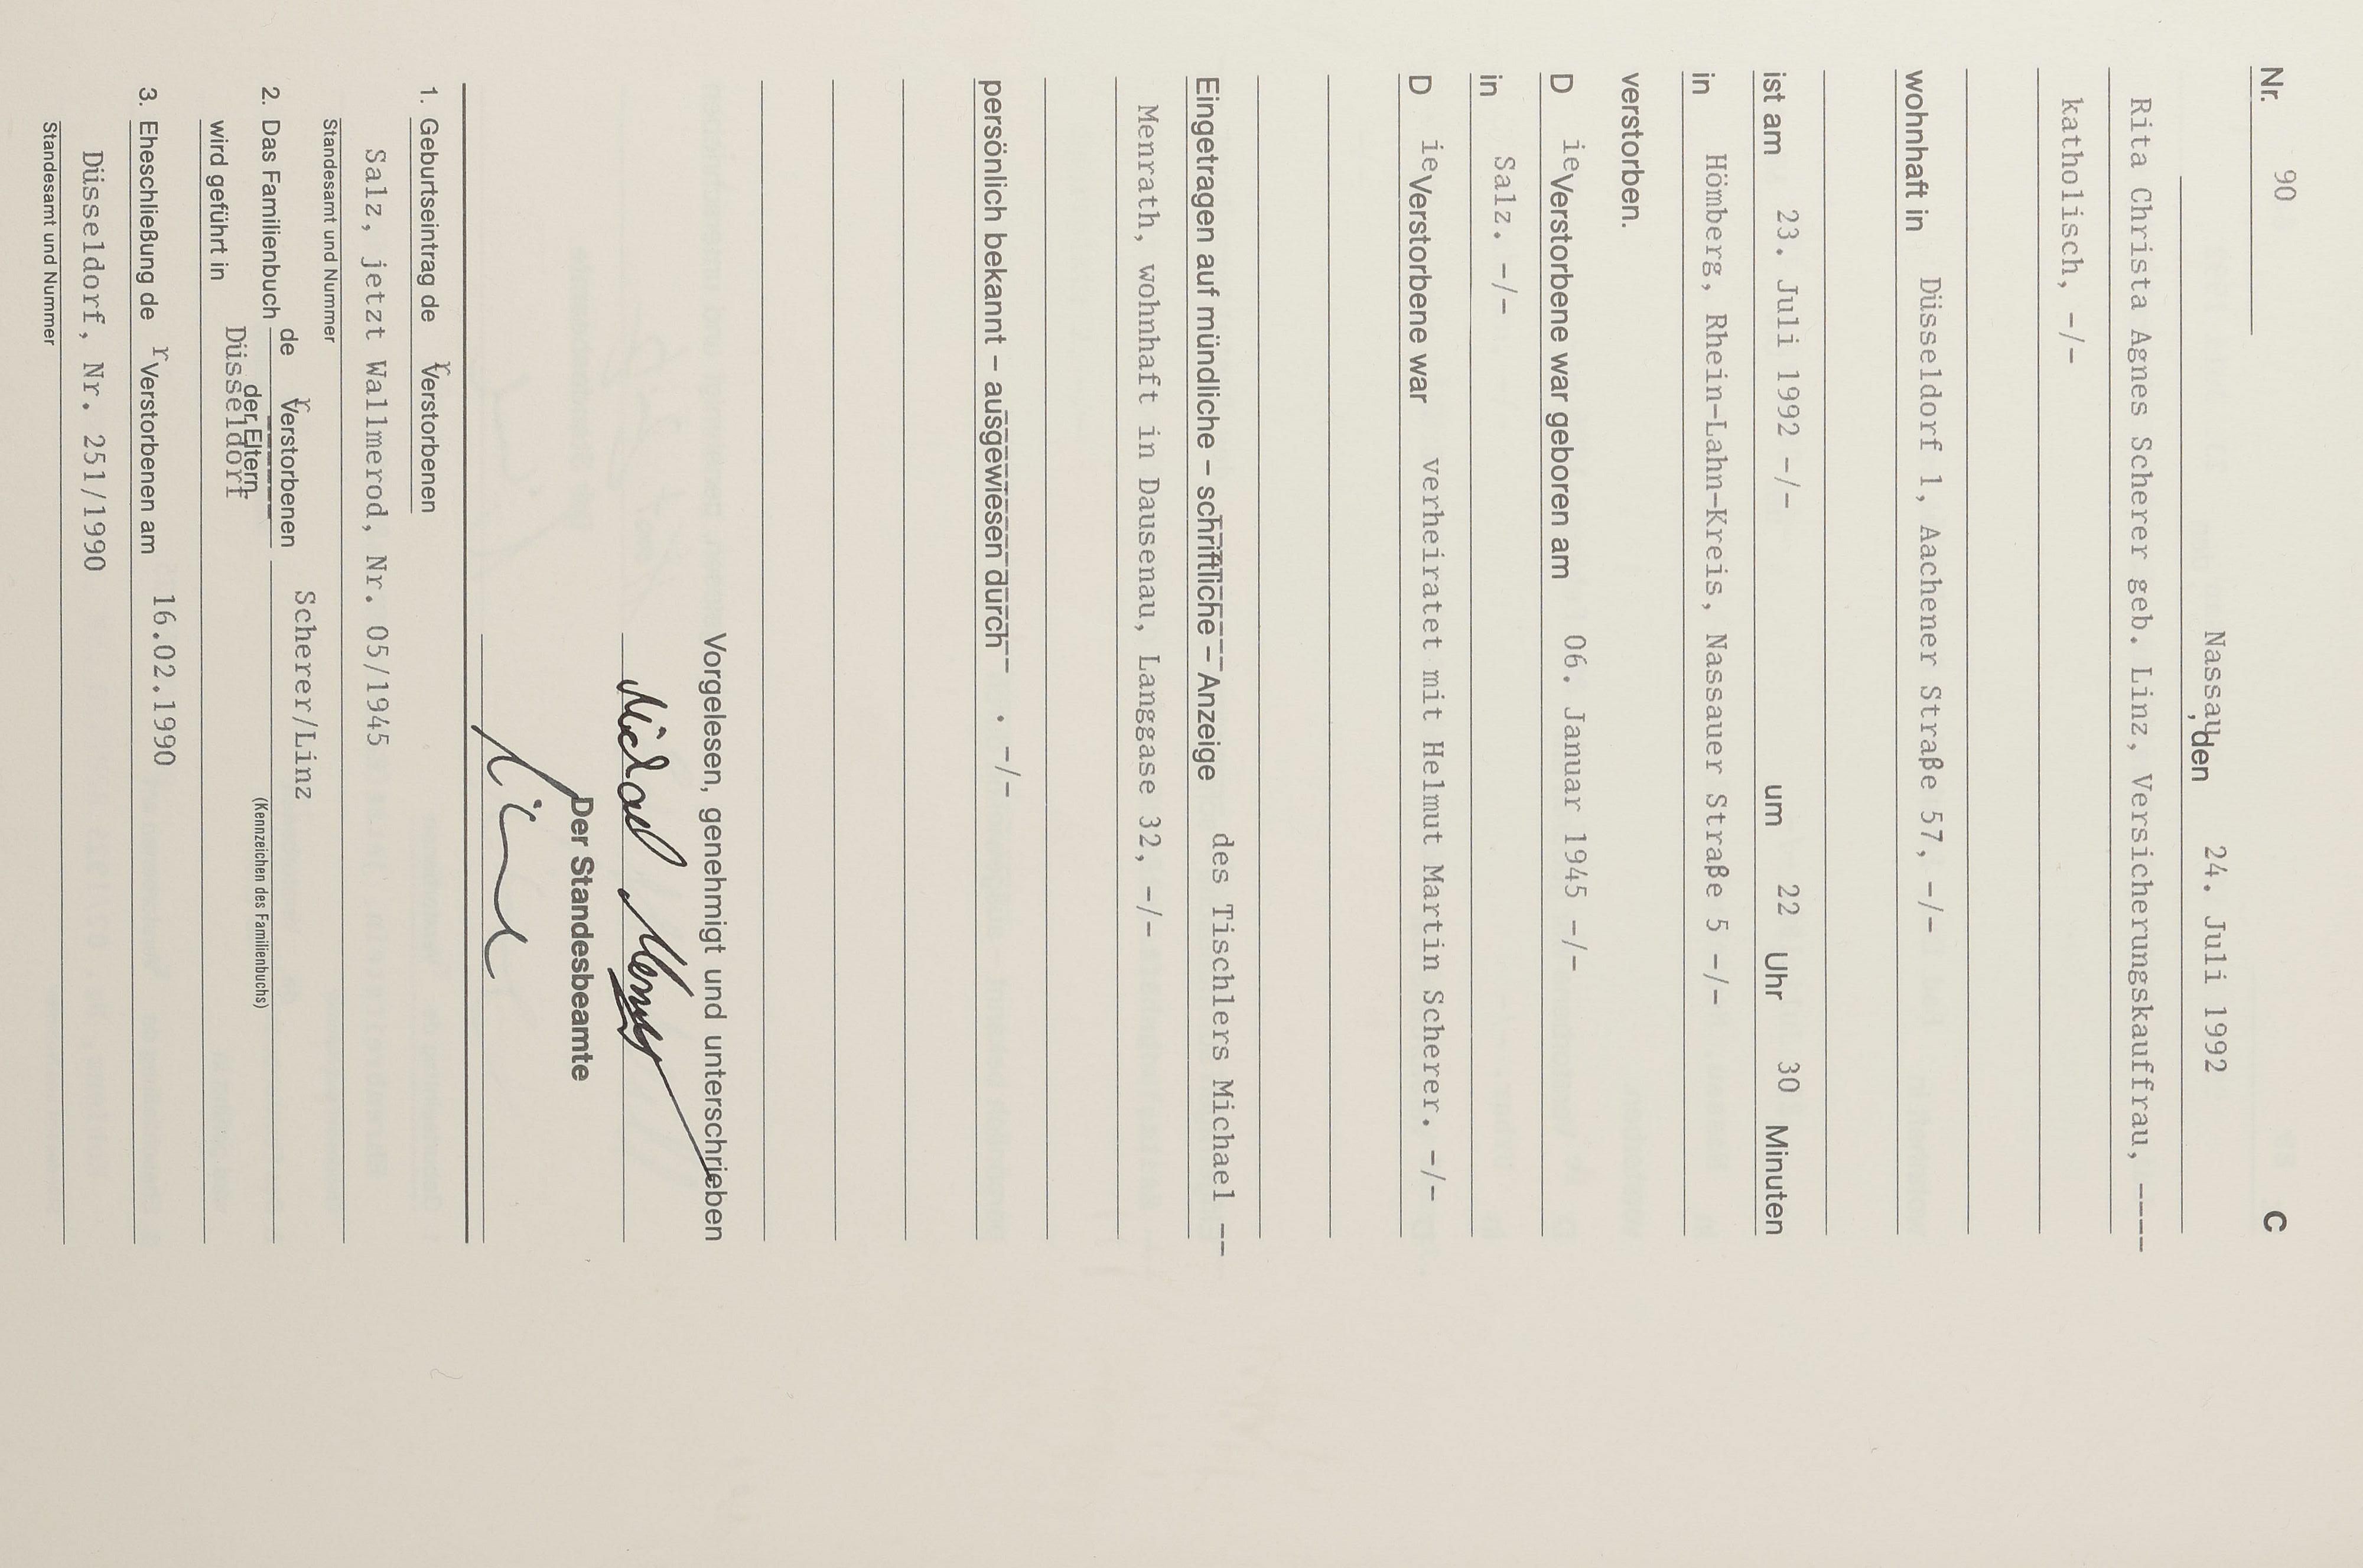 Nr. 90 C
Nassau, den 24. Juli 1992
Rita Christa Agnes Scherer geb. Linz, Versicherungskauffrau, ----
katholisch, -/-
wohnhaft in Düsseldorf 1, Aachener Straße 57, -/-
ist am 23. Juli 1992 -/- um 22 Uhr 30 Minuten
in Hömberg, Rhein-Lahn-Kreis, Nassauer Straße 5 -/-
verstorben.
Die Verstorbene war geboren am 06. Januar 1945 -/-
in Salz. -/-
Die Verstorbene war verheiratet mit Helmut Martin Scherer. -/-
Eingetragen auf mündliche – schriftliche – Anzeige des Tischlers Michael --
Menrath, wohnhaft in Dausenau, Langgase 32, -/-
persönlich bekannt – ausgewiesen durch . -/-
Vorgelesen, genehmigt und unterschrieben
Michael
Der Standesbeamte
1. Geburtseintrag der Verstorbenen
Salz, jetzt Wallmerod, Nr. 05/1945
Standesamt und Nummer
2. Das Familienbuch der Verstorbenen Scherer/Linz
der Eltern (Kennzeichen des Familienbuchs)
wird geführt in Düsseldorf
3. Eheschließung der Verstorbenen am 16.02.1990
Düsseldorf, Nr. 251/1990
Standesamt und Nummer